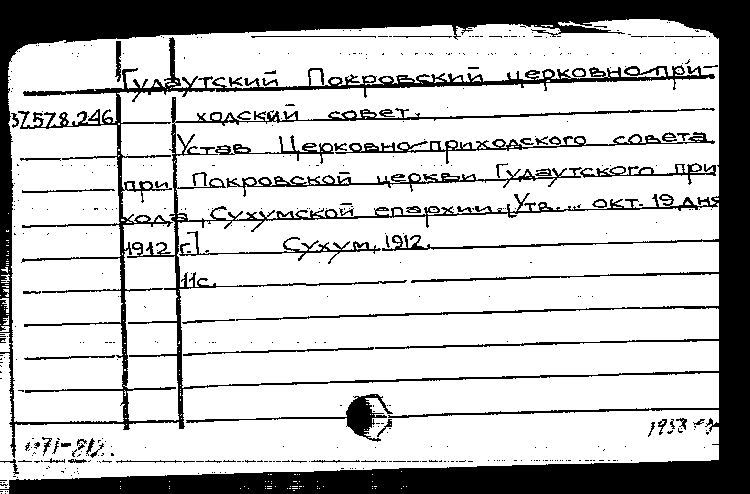 Гудаутский Покровский церковно-при-
37.578.246 ходский совет.
Устав Церковно-приходского совета
при Покровской церкви Гудаутского при
хода, Сухумской епархии. [Утв. ... окт. 19 дня
1912 г.]. Сухум, 1912.
11с.
1958